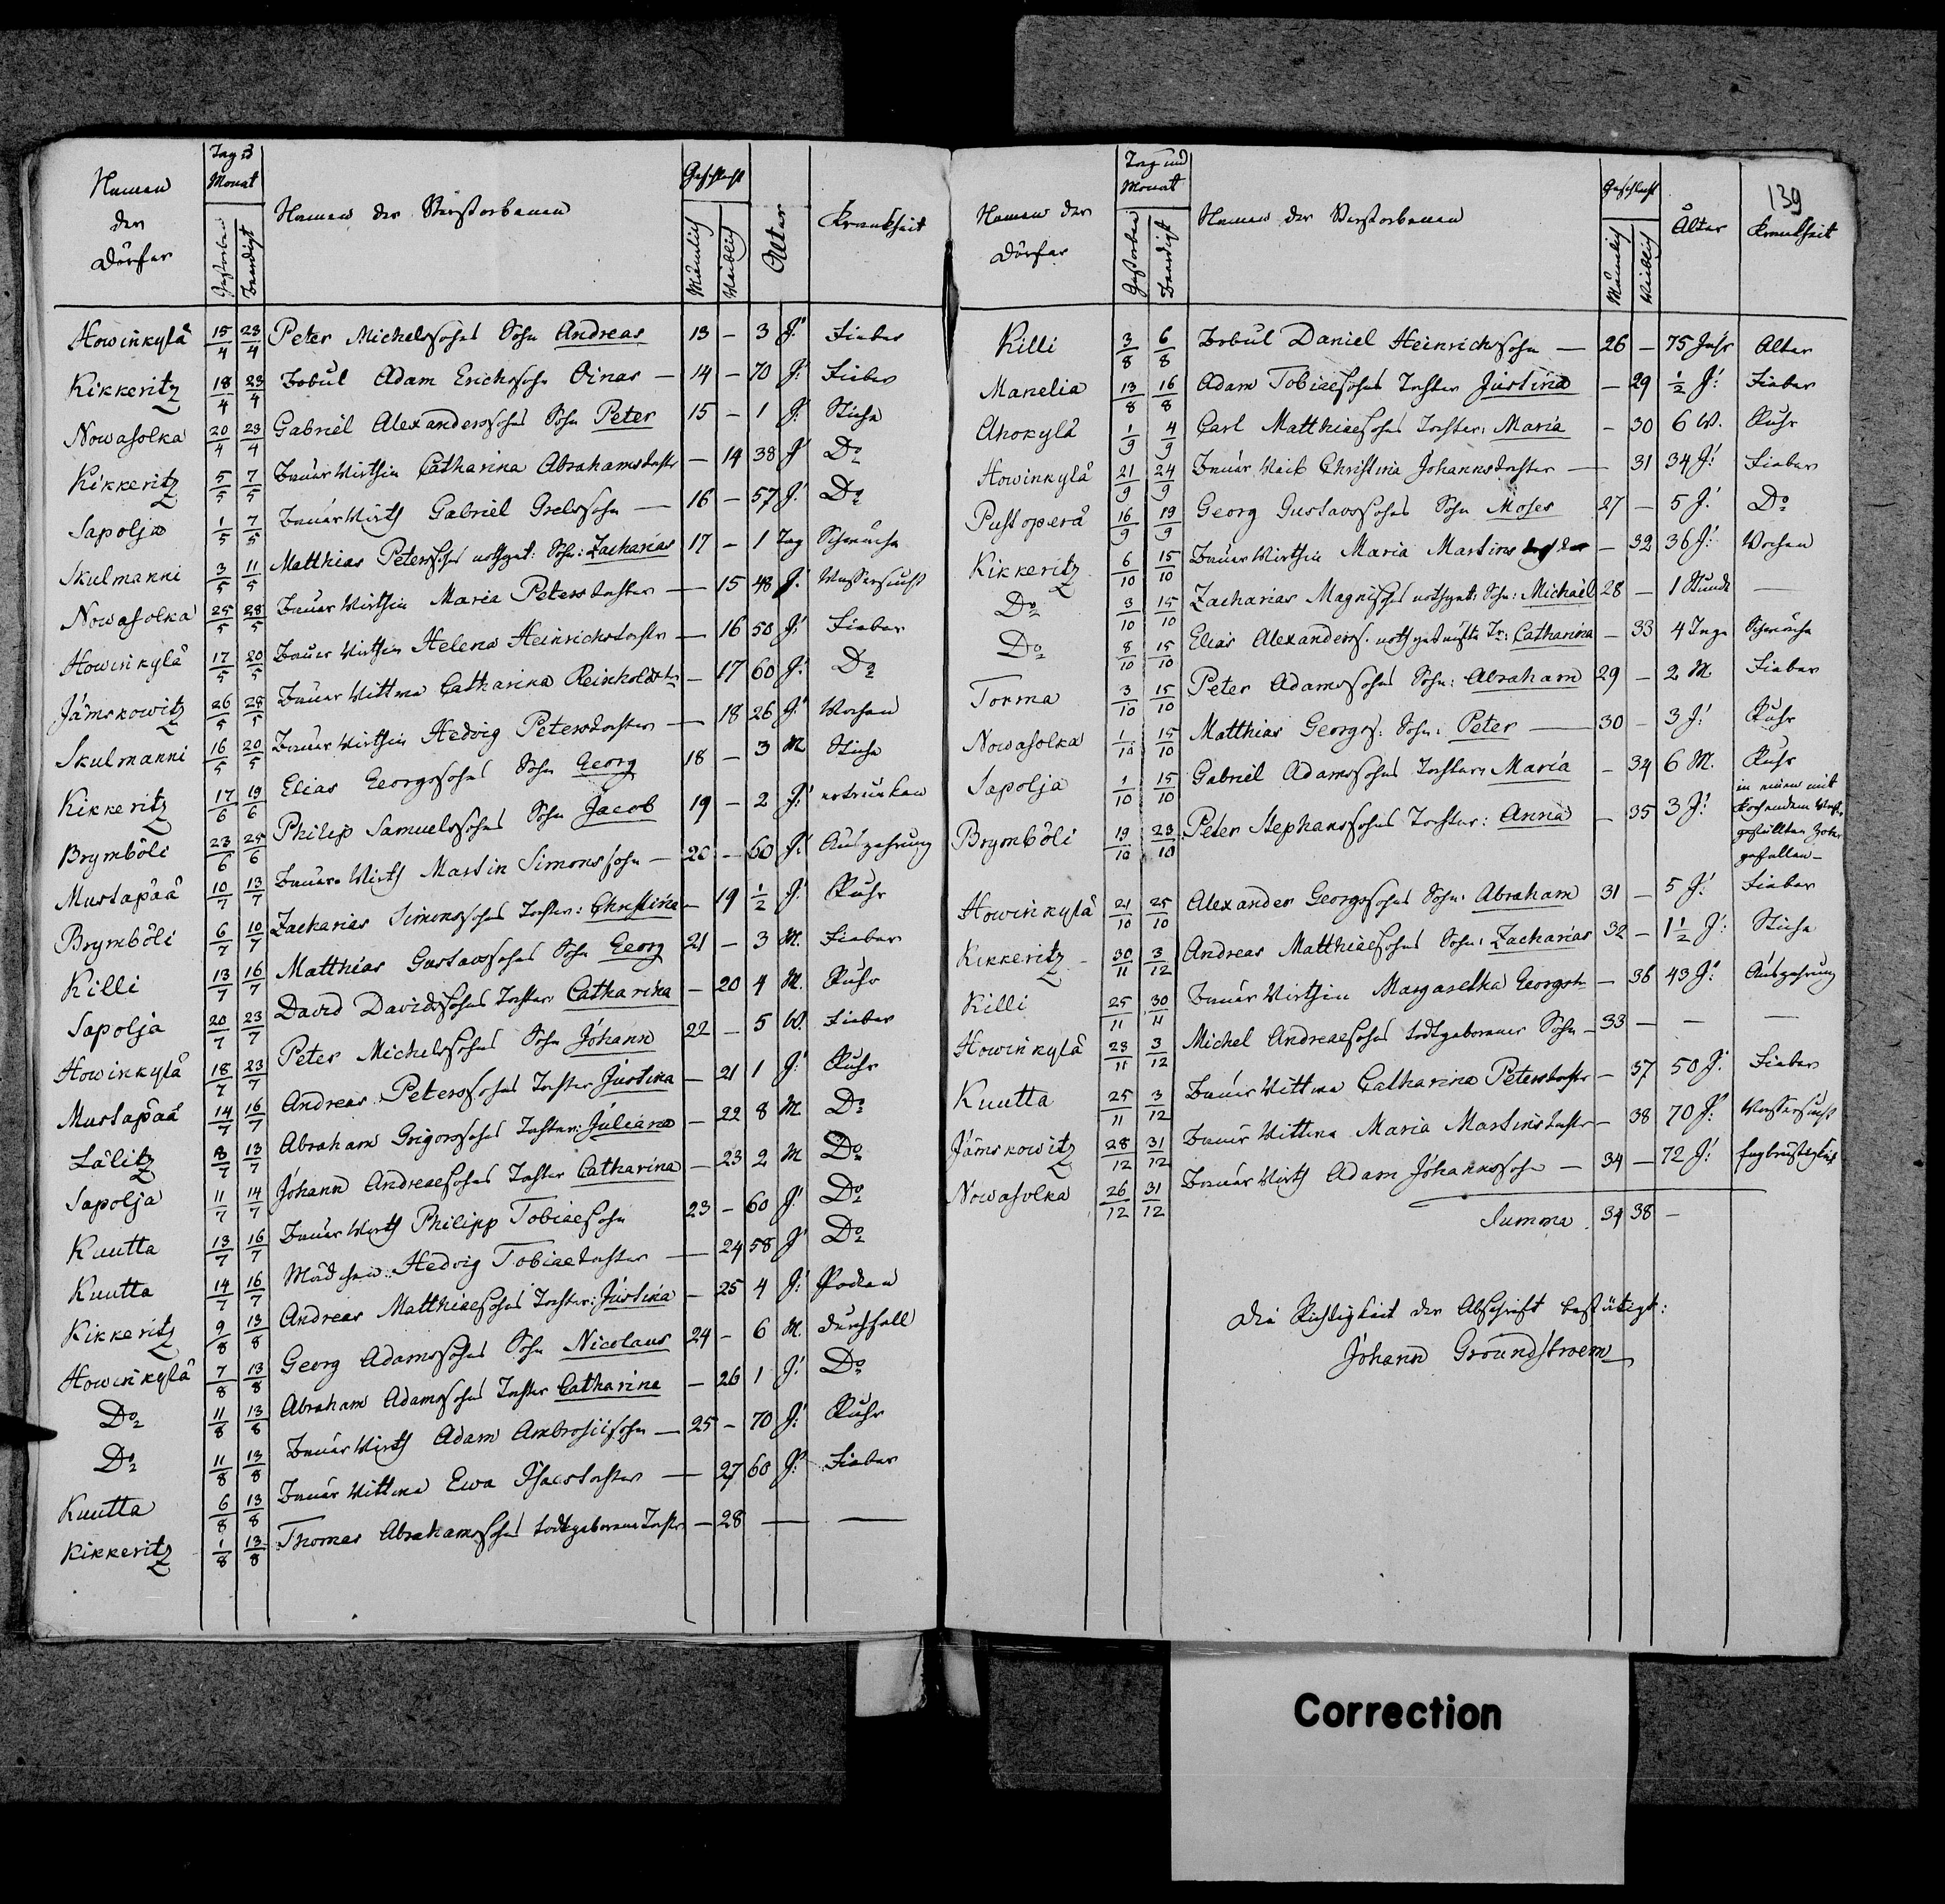 Namen
der
Dörfer
Tag &
Monat
Gestorben
Beerdigt
Namen der Verstorbenen
Geschlecht
Männlich
Weiblich
Alter
Krankheit
Howinkylä 15/4 23/4 Peter Michelssohns Sohn Andreas 13 – 3 J: Fieber
Kikkeritz 18/4 23/4 Lobül Adam Erichssohn Oinas — 14 – 70 J: Fieber
Nowasolka 20/4 23/4 Gabriel Alexanderssohns Sohn Peter 15 – 1 J: Stiche
Kikkeritz 5/5 7/5 Bauer Wirthin Catharina Abrahamstochtr – 14 38 J: Do
Sapolja 1/5 7/5 Bauer Wirth Gabriel Grelssohn — 16 – 57 J: Do
Skulmanni 3/5 11/5 Matthias Peterssohns nothget: Sohn: Zacharias 17 – 1 Tag Schwäche
Nowasolka 25/5 28/5 Bauer Wirthin Maria Peterstochter — 15 48 J: Wassersucht
Howinkylä 17/5 20/5 Bauer Wirthin Helena Heinrichstochtr – 16 50 J: Fieber
Jämskowitz 26/5 28/5 Bauer Wittwe Catharina Reinholdstr – 17 60 J: Do
Skulmanni 16/5 20/5 Bauer Wirthin Hedvig Peterstochter — 18 26 J: Wochen
Kikkeritz 17/6 19/6 Elias Georgssohns Sohn Georg 18 – 3 M Stiche
Brymböli 23/6 25/6 Philip Samuelssohns Sohn Jacob 19 – 2 J: ertrunken
Mustapää 10/7 13/7 Bauer Wirth Martin Simonssohn – 20 – 60 J: Auszehrung
Brymböli 6/7 10/7 Zacharias Simonssohns Tochter: Christina – 19 ½ J: Ruhr
Killi 13/7 16/7 Matthias Gustavssohns Sohn Georg 21 – 3 M. Fieber
Sapolja 20/7 23/7 David Davidssohns Tochter Catharina – 20 4 M. Ruhr
Howinkylä 18/7 23/7 Peter Michelssohns Sohn Johann 22 – 5 W. Fieber
Mustapää 14/7 16/7 Andreas Peterssohns Tochter Justina – 21 1 J: Ruhr
Lälitz 8/7 13/7 Abraham Grigorssohns Tochter: Juliana – 22 8 M Do
Sapolja 11/7 14/7 Johann Andreaesohns Tochter Catharina – 23 2 M Do
Kuutta 13/7 16/7 Bauer Wirth Philipp Tobiaesohn 23 – 60 J: Do
Kuutta 14/7 16/7 Mädchen: Hedvig Tobiaetochter — 24 58 J: Do
Kikkeritz 9/8 13/8 Andreas Matthiaesohns Tochter: Justina – 25 4 J: Pocken
Howinkylä 7/8 13/8 Georg Adamssohns Sohn Nicolaus 24 – 6 M. Durchfall
Do 11/8 13/8 Abraham Adamssohns Tochter Catharina – 26 1 J: Do
Do 11/8 13/8 Bauer Wirth Adam Ambrosiisohn — 25 – 70 J: Ruhr
Kuutta 6/8 13/8 Bauer Wittwe Ewa Isacstochter — 27 60 J: Fieber
Kikkeritz 1/8 13/8 Thomas Abrahamssohns todtgeborene Tochtr – 28 — —
139
Namen der
Dörfer
Tag und
Monat
Gestorben
Beerdigt
Namen der Verstorbenen
Geschlecht
Männlich
Weiblich
Alter
Krankheit
Killi 3/8 6/8 Lobül Daniel Heinrichssohn — 26 – 75 Jahr Alter
Manelia 13/8 16/8 Adam Tobiaesohns Tochter Justina – 29 ½ J: Fieber
Ahokylä 1/9 4/9 Carl Matthiaesohns Tochter: Maria – 30 6 W. Ruhr
Howinkylä 21/9 24/9 Bauer Weib Christina Johannstochter — 31 34 J: Fieber
Pustoperä 16/9 19/9 Georg Gustavssohns Sohn Moses 27 – 5 J: Do
Kikkeritz 6/10 15/10 Bauer Wirthin Maria Martinstochter – 32 36 J: Wochen
Do 3/10 15/10 Zacharias Magnisohns nothget: Sohn: Michael 28 – 1 Stunde —
Do 8/10 15/10 Elias Alexanders. nothgetaufte Tr: Catharina – 33 4 Tage Schwäche
Torma 3/10 15/10 Peter Adamssohns Sohn: Abraham 29 – 2 M Fieber
Nowasolka 1/10 15/10 Matthias Georgs: Sohn: Peter — 30 – 3 J: Ruhr
Sapolja 1/10 15/10 Gabriel Adamssohns Tochter: Maria – 34 6 M. Ruhr
Brymböli 19/10 23/10 Peter Stephanssohns Tochter: Anna – 35 3 J: in einen mit
kochendem Wassr
gefüllten Zober
gefallen –
Howinkylä 21/10 25/10 Alexander Georgssohns Sohn: Abraham 31 – 5 J: Fieber
Kikkeritz – 30/11 3/12 Andreas Matthiaesohns Sohn: Zacharias 32 – 1½ J: Stiche
Killi 25/11 30/11 Bauer Wirthin Margaretha Georgstr – 36 43 J: Auszehrung
Howinkylä 23/11 3/12 Michel Andreaesohns todtgeborener Sohn – 33 – — —
Kuutta 25/11 3/12 Bauer Wittwe Catharina Peterstochtr – 37 50 J: Fieber
Jämskowitz 28/12 31/12 Bauer Wittwe Maria Martinstochtr – 38 70 J: Wassersucht
Nowasolka 26/12 31/12 Bauer Wirth Adam Johannssohn — 34 – 72 J: Engbrüstigkeit
Summa 34 38 –
Die Richtigkeit der Abschrift bestätigt:
Johann Groundstroem
Correction